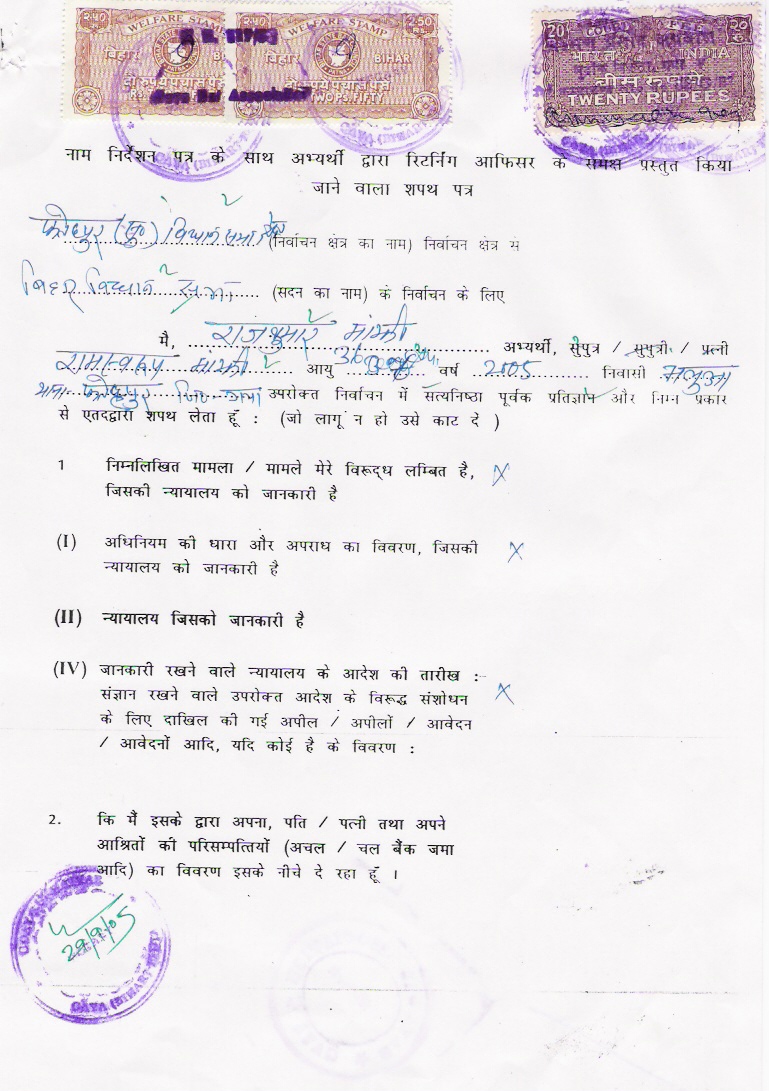 २.५० WELFARE STAMP WELFARE STAMP 2.50
बिहार BIHAR बिहार BIHAR
Gaya Bar Association
20 COURT FEE २० रु
भारत INDIA
बीस रूपये
TWENTY RUPEES
नाम निर्देशन पत्र के साथ अभ्यर्थी द्वारा रिटर्निंग आफिसर के समक्ष प्रस्तुत किया
जाने वाला शपथ पत्र
फतेहपुर (सु०) विधान सभा क्षेत्र (निर्वाचन क्षेत्र का नाम) निर्वाचन क्षेत्र से
बिहार विधान सभा (सदन का नाम) के निर्वाचन के लिए
मै, राजकुमार मांझी अभ्यर्थी, सुपुत्र / सुपुत्री / प्रत्नी
मांझी आयु 36 वर्ष 2005 निवासी
थाना- फतेहपुर जिला- गया उपरोक्त निर्वाचन में सत्यनिष्ठा पूर्वक प्रतिज्ञान और निम्न प्रकार
से एतदद्वारा शपथ लेता हूँ : (जो लागू न हो उसे काट दें )
1 निम्नलिखित मामला / मामले मेरे विरूद्ध लम्बित है, X
जिसकी न्यायालय को जानकारी है
(I) अधिनियम की धारा और अपराध का विवरण, जिसकी X
न्यायालय को जानकारी है
(II) न्यायालय जिसको जानकारी है
(IV) जानकारी रखने वाले न्यायालय के आदेश की तारीख :
संज्ञान रखने वाले उपरोक्त आदेश के विरूद्ध संशोधन X
के लिए दाखिल की गई अपील / अपीलों / आवेदन
/ आवेदनों आदि, यदि कोई है के विवरण :
2. कि मैं इसके द्वारा अपना, पति / पत्नी तथा अपने
आश्रितों की परिसम्पत्तियों (अचल / चल बैंक जमा
आदि) का विवरण इसके नीचे दे रहा हूँ ।
29/9/05
GAYA (BIHAR)